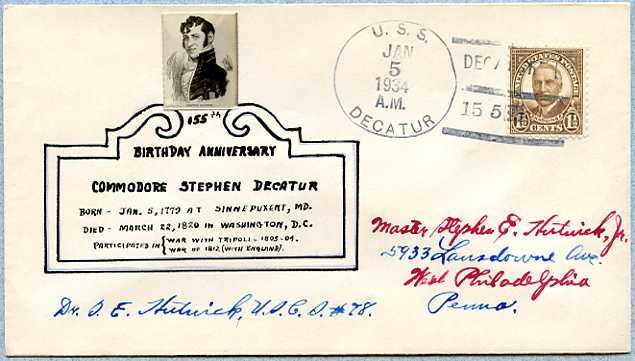 155th
BIRTHDAY ANNIVERSARY
COMMODORE STEPHEN DECATUR
BORN - JAN. 5, 1779 AT SINNEPUXENT, MD.
DIED - MARCH 22, 1820 IN WASHINGTON, D.C.
PARTICIPATED IN { WAR WITH TRIPOLI - 1803-04.
WAR OF 1812 (WITH ENGLAND).
U. S. S.
JAN
5
1934
A.M.
DECATUR
UNITED STATES POSTAGE
1½ CENTS 1½
Master Stephen E. Hutnick, Jr.
5933 Lansdowne Ave.
West Philadelphia
Penna.
Dr. S. E. Hutnick, U.S.C.S. #78.